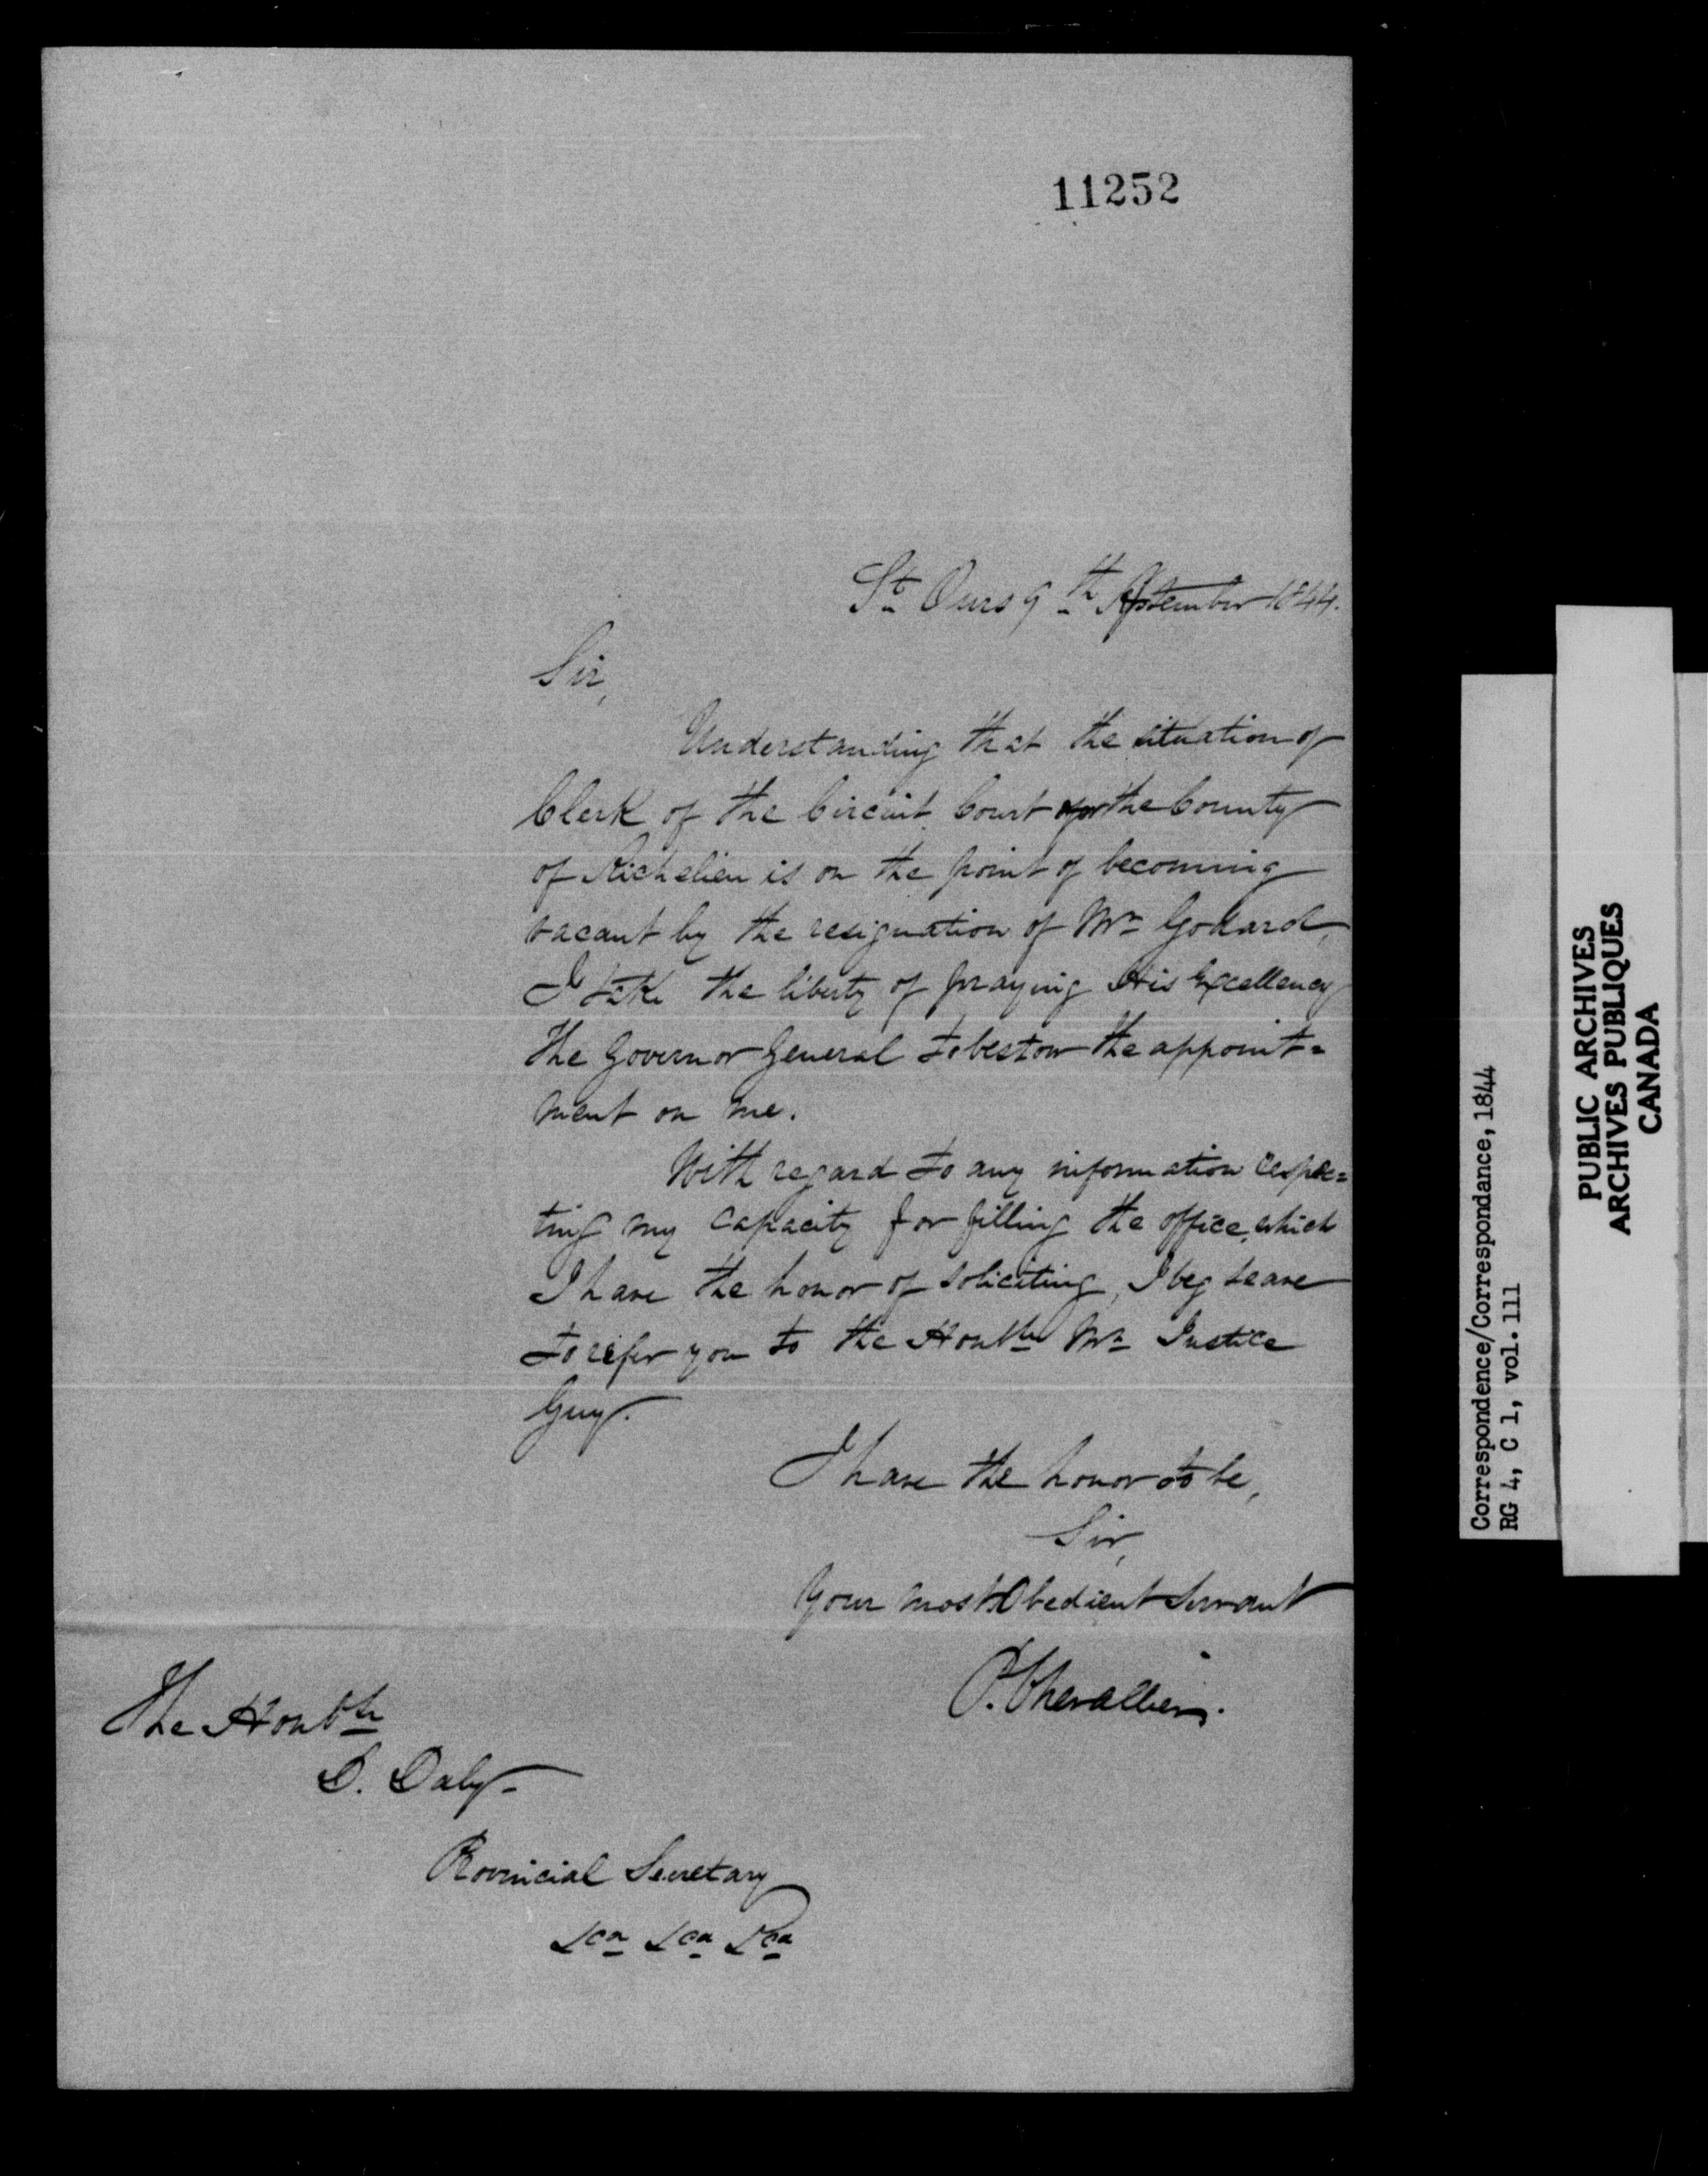 11252
St Ours 9th September 1844.
Sir,
Understanding that the situation of
Clerk of the Circuit Court for the County
of Richelieu is on the point of becoming
vacant by the resignation of Mr Godard,
I take the liberty of praying His Excellency
the Governor General to bestow the appoint=
ment on me.
With regard to any information respec=
ting my capacity for filling the office, which
I have the honor of soliciting, I beg leave
to refer you to the Honble Mr Justice
Guy.
I have the honor to be,
Sir,
Your most Obedient Servant
Chevallier.
The Honble
D. Daly
Provincial Secretary
&ca &ca &ca
Correspondence/Correspondance, 1844
RG 4, C 1, vol. 111
PUBLIC ARCHIVES
ARCHIVES PUBLIQUES
CANADA